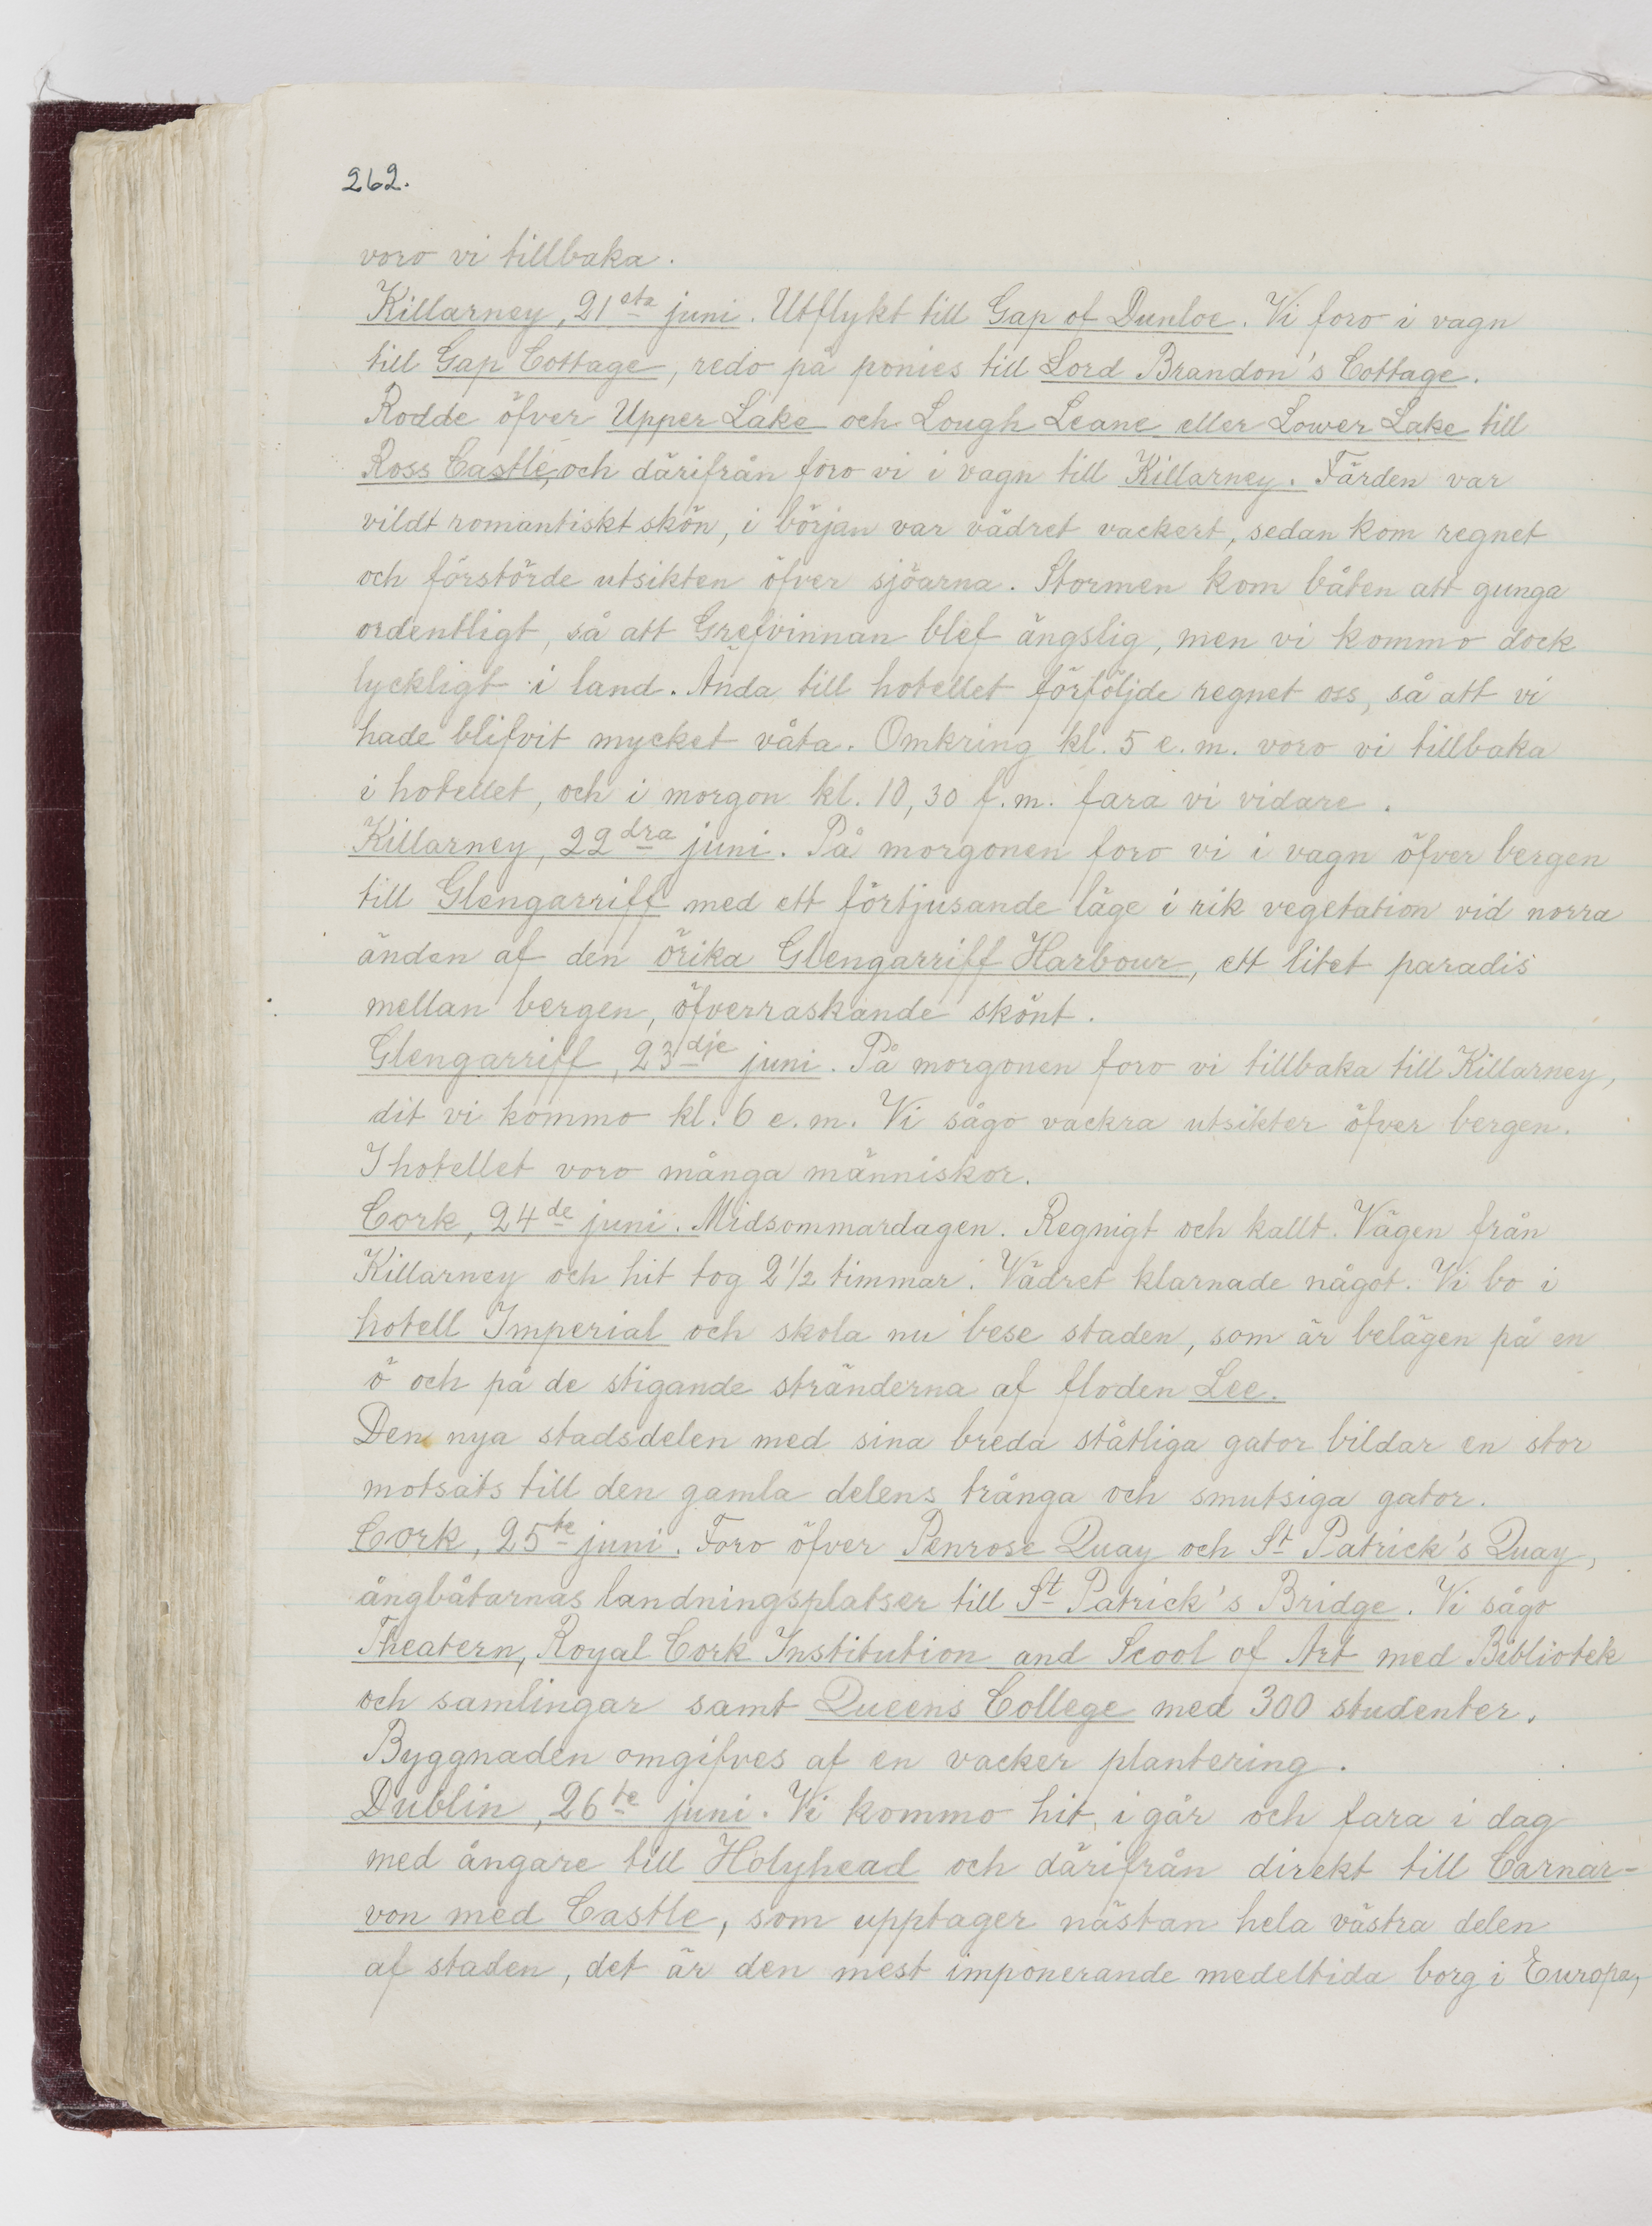 262.
voro vi tillbaka.
Killarney, 21sta juni. Utflykt till Gap of Dunloe. Vi foro i vagn
till Gap Cottage, redo på ponies till Lord Brandon's Cottage.
Rodde öfver Upper Lake och Lough Leane eller Lower Lake till
Ross Castle, och därifrån foro vi i vagn till Killarney. Färden var
vildt romantiskt skön, i början var vädret vackert, sedan kom regnet
och förstörde utsikten öfver sjöarna. Stormen kom båten att gunga
ordentligt, så att Grefvinnan blef ängslig, men vi kommo dock
lyckligt i land. Ända till hotellet förföljde regnet oss, så att vi
hade blifvit mycket våta. Omkring kl. 5 e.m. voro vi tillbaka
i hotellet, och i morgon kl. 10,30 f.m. fara vi vidare.
Killarney, 22dra juni. På morgonen foro vi i vagn öfver bergen
till Glengarriff med ett förtjusande läge i rik vegetation vid norra
änden af den örika Glengarriff Harbour, ett litet paradis
mellan bergen, öfverraskande skönt.
Glengarriff, 23dje juni. På morgonen foro vi tillbaka till Killarney,
dit vi kommo kl. 6 e.m. Vi sågo vackra utsikter öfver bergen.
I hotellet voro många människor.
Cork, 24de juni. Midsommardagen. Regnigt och kallt. Vägen från
Killarney och hit tog 2½ timmar. Vädret klarnade något. Vi bo i
hotell Imperial och skola nu bese staden, som är belägen på en
ö och på de stigande stränderna af floden Lee.
Den nya stadsdelen med sina breda ståtliga gator bildar en stor
motsats till den gamla delens trånga och smutsiga gator.
Cork, 25te juni. Foro öfver Penrose Quay och St Patrick's Quay,
ångbåtarnas landningsplatser till St Patrick's Bridge. Vi sågo
Theatern, Royal Cork Institution and Scool of Art med Bibliotek
och samlingar samt Queens College med 300 studenter.
Byggnaden omgifves af en vacker plantering.
Dublin, 26te juni. Vi kommo hit i går och fara i dag
med ångare till Holyhead och därifrån direkt till Carnar-
von med Castle, som upptager nästan hela västra delen
af staden, det är den mest imponerande medeltida borg i Europa,